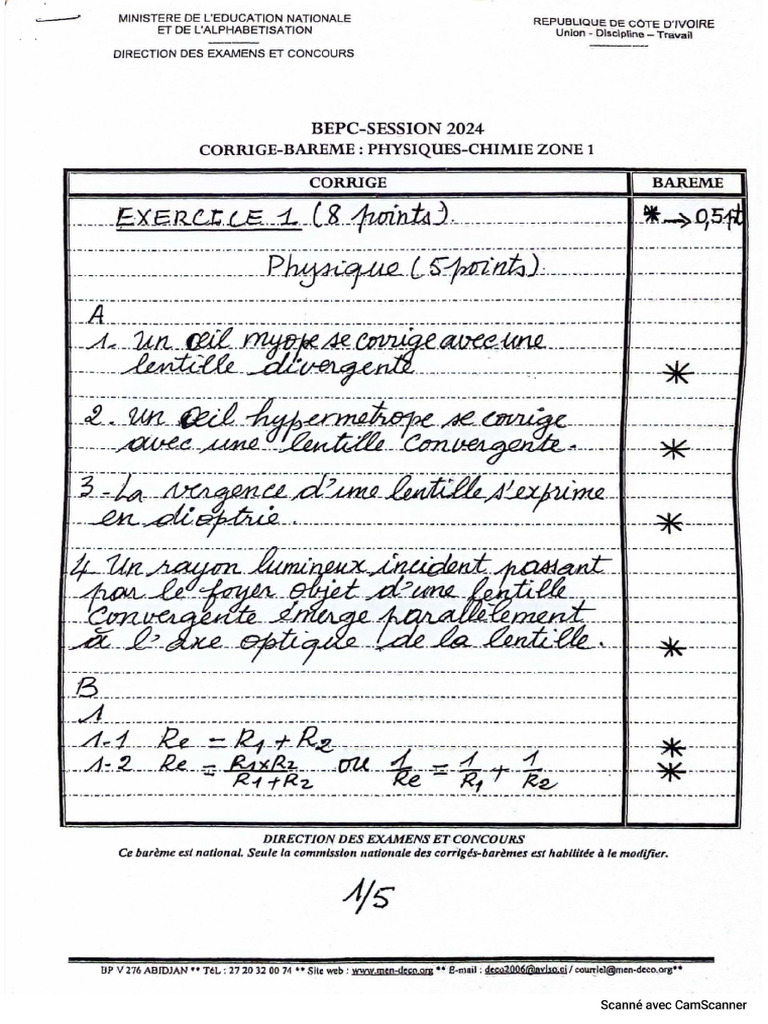 MINISTERE DE L'EDUCATION NATIONALE
ET DE L'ALPHABETISATION
DIRECTION DES EXAMENS ET CONCOURS
REPUBLIQUE DE COTE D'IVOIRE
Union - Discipline – Travail
BEPC-SESSION 2024
CORRIGE-BAREME : PHYSIQUES-CHIMIE ZONE 1
CORRIGE
BAREME
EXERCICE 1 (8 points).
* → 0,5pt
Physique (5points).
A
1. Un œil myope se corrige avec une
lentille divergente
*
2. Un œil hypermetrope se corrige
avec une lentille convergente.
*
3-La vergence d'une lentille s'exprime
en dioptrie.
*
4 Un rayon lumineux incident passant
par le foyer objet d'une lentille
convergente émerge parallèlement
à l'axe optique de la lentille.
*
B
1
1-1 Re = R1 + R2
*
1-2 Re = R1×R2/R1+R2 ou 1/Re = 1/R1 + 1/R2
*
DIRECTION DES EXAMENS ET CONCOURS
Ce barème est national. Seule la commission nationale des corrigés-barèmes est habilitée à le modifier.
1/5
BP V 276 ABIDJAN ** TéL : 27 20 32 00 74 ** Site web : www.men-deco.org ** E-mail : deco2006@aviso.ci / courriel@men-deco.org**
Scanné avec CamScanner